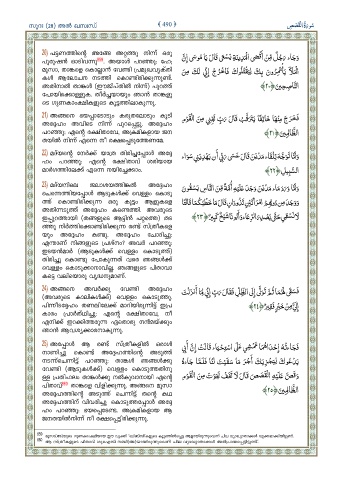 സൂറ (28) അൽ ഖസ്വസ്
﴾ 490 ﴿
سُورَةُ الْقَصَصِ
20) പട്ടണത്തിന്റെ അങ്ങേ അറ്റത്തു നിന്ന് ഒരു
പുരുഷൻ ഓടിവന്നു. അയാൾ പറഞ്ഞു: ഹേ;
മൂസാ, താങ്കളെ കൊല്ലാൻ വേണ്ടി പ്രമുഖവ്യക്തി
കൾ ആലോചന നടത്തി കൊണ്ടിരിക്കുന്നുണ്ട്.
അതിനാൽ താങ്കൾ (ഈജിപ്തിൽ നിന്ന്) പുറത്ത്
പോയിക്കൊള്ളുക. തീർച്ചയായും ഞാൻ താങ്കളു
ടെ ഗുണകാംക്ഷികളുടെ കൂട്ടത്തിലാകുന്നു.
وَجَاءَ رَجُلٌ مِّنْ أَقْصَى الْمَدِينَةِ يَسْعَىٰ قَالَ يَا مُوسَىٰ إِنَّ
الْمَلَأَ يَأْتَمِرُونَ بِكَ لِيَقْتُلُوكَ فَاخْرُجْ إِنِّي لَكَ مِنَ
النَّاصِحِينَ ﴿٢٠﴾
21) അങ്ങനെ ഭയപ്പാടോടും കരുതലോടും കൂടി
അദ്ദേഹം അവിടെ നിന്ന് പുറപ്പെട്ടു. അദ്ദേഹം
പറഞ്ഞു: എന്റെ രക്ഷിതാവേ, അക്രമികളായ ജന
തയിൽ നിന്ന് എന്നെ നീ രക്ഷപ്പെടുത്തേണമേ.
فَخَرَجَ مِنْهَا خَائِفًا يَتَرَقَّبُ قَالَ رَبِّ نَجِّنِي مِنَ الْقَوْمِ
الظَّالِمِينَ ﴿٢١﴾
22) മദ്‌യന്റെ നേർക്ക് യാത്ര തിരിച്ചപ്പോൾ അദ്ദേ
ഹം പറഞ്ഞു: എന്റെ രക്ഷിതാവ് ശരിയായ
മാർഗത്തിലേക്ക് എന്നെ നയിച്ചേക്കാം.
وَلَمَّا تَوَجَّهَ تِلْقَاءَ مَدْيَنَ قَالَ عَسَىٰ رَبِّي أَن يَهْدِيَنِي سَوَاءَ
السَّبِيلِ ﴿٢٢﴾
23) മദ്‌യനിലെ ജലാശയത്തിങ്കൽ അദ്ദേഹം
ചെന്നെത്തിയപ്പോൾ ആടുകൾക്ക് വെള്ളം കൊടു
ത്ത് കൊണ്ടിരിക്കുന്ന ഒരു കൂട്ടം ആളുകളെ
അതിന്നടുത്ത് അദ്ദേഹം കണ്ടെത്തി. അവരുടെ
ഇപ്പുറത്തായി (തങ്ങളുടെ ആട്ടിൻ പറ്റത്തെ) തട
ഞ്ഞു നിർത്തിക്കൊണ്ടിരിക്കുന്ന രണ്ട് സ്ത്രീകളെ
യും അദ്ദേഹം കണ്ടു. അദ്ദേഹം ചോദിച്ചു:
എന്താണ് നിങ്ങളുടെ പ്രശ്നം? അവർ പറഞ്ഞു:
ഇടയന്മാർ (ആടുകൾക്ക് വെള്ളം കൊടുത്ത്)
തിരിച്ചു കൊണ്ടു പോകുന്നത് വരെ ഞങ്ങൾക്ക്
വെള്ളം കൊടുക്കാനാവില്ല. ഞങ്ങളുടെ പിതാവാ
കട്ടെ വലിയൊരു വൃദ്ധനുമാണ്.
وَلَمَّا وَرَدَ مَاءَ مَدْيَنَ وَجَدَ عَلَيْهِ أُمَّةً مِّنَ النَّاسِ يَسْقُونَ
وَوَجَدَ مِن دُونِهِمُ امْرَأَتَيْنِ تَذُودَانِ قَالَ مَا خَطْبُكُمَا قَالَتَا
لَا نَسْقِي حَتَّىٰ يُصْدِرَ الرِّعَاءُ وَأَبُونَا شَيْخٌ كَبِيرٌ ﴿٢٣﴾
24) അങ്ങനെ അവർക്കു വേണ്ടി അദ്ദേഹം
(അവരുടെ കാലികൾക്ക്) വെള്ളം കൊടുത്തു.
പിന്നീടദ്ദേഹം തണലിലേക്ക് മാറിയിരുന്നിട്ട് ഇപ്ര
കാരം പ്രാർത്ഥിച്ചു: എന്റെ രക്ഷിതാവേ, നീ
എനിക്ക് ഇറക്കിത്തരുന്ന ഏതൊരു നന്മയ്ക്കും
ഞാൻ ആവശ്യക്കാരനാകുന്നു.
فَسَقَىٰ لَهُمَا ثُمَّ تَوَلَّىٰ إِلَى الظِّلِّ فَقَالَ رَبِّ إِنِّي لِمَا أَنزَلْتَ
إِلَيَّ مِنْ خَيْرٍ فَقِيرٌ ﴿٢٤﴾
25) അപ്പോൾ ആ രണ്ട് സ്ത്രീകളിൽ ഒരാൾ
നാണിച്ചു കൊണ്ട് അദ്ദേഹത്തിന്റെ അടുത്ത്
നടന്ന്ചെന്നിട്ട് പറഞ്ഞു: താങ്കൾ ഞങ്ങൾക്കു
വേണ്ടി (ആടുകൾക്ക്) വെള്ളം കൊടുത്തതിനു
ള്ള പ്രതിഫലം താങ്കൾക്കു നൽകുവാനായി എന്റെ
പിതാവ് താങ്കളെ വിളിക്കുന്നു. അങ്ങനെ മൂസാ
അദ്ദേഹത്തിന്റെ അടുത്ത് ചെന്നിട്ട് തന്റെ കഥ
അദ്ദേഹത്തിന് വിവരിച്ചു കൊടുത്തപ്പോൾ അദ്ദേ
ഹം പറഞ്ഞു: ഭയപ്പെടേണ്ട. അക്രമികളായ ആ
ജനതയിൽനിന്ന് നീ രക്ഷപ്പെട്ടിരിക്കുന്നു.
فَجَاءَتْهُ إِحْدَاهُمَا تَمْشِي عَلَى اسْتِحْيَاءٍ قَالَتْ إِنَّ أَبِي
يَدْعُوكَ لِيَجْزِيَكَ أَجْرَ مَا سَقَيْتَ لَنَا فَلَمَّا جَاءَهُ
وَقَصَّ عَلَيْهِ الْقَصَصَ قَالَ لَا تَخَفْ نَجَوْتَ مِنَ الْقَوْمِ
الظَّالِمِينَ ﴿٢٥﴾